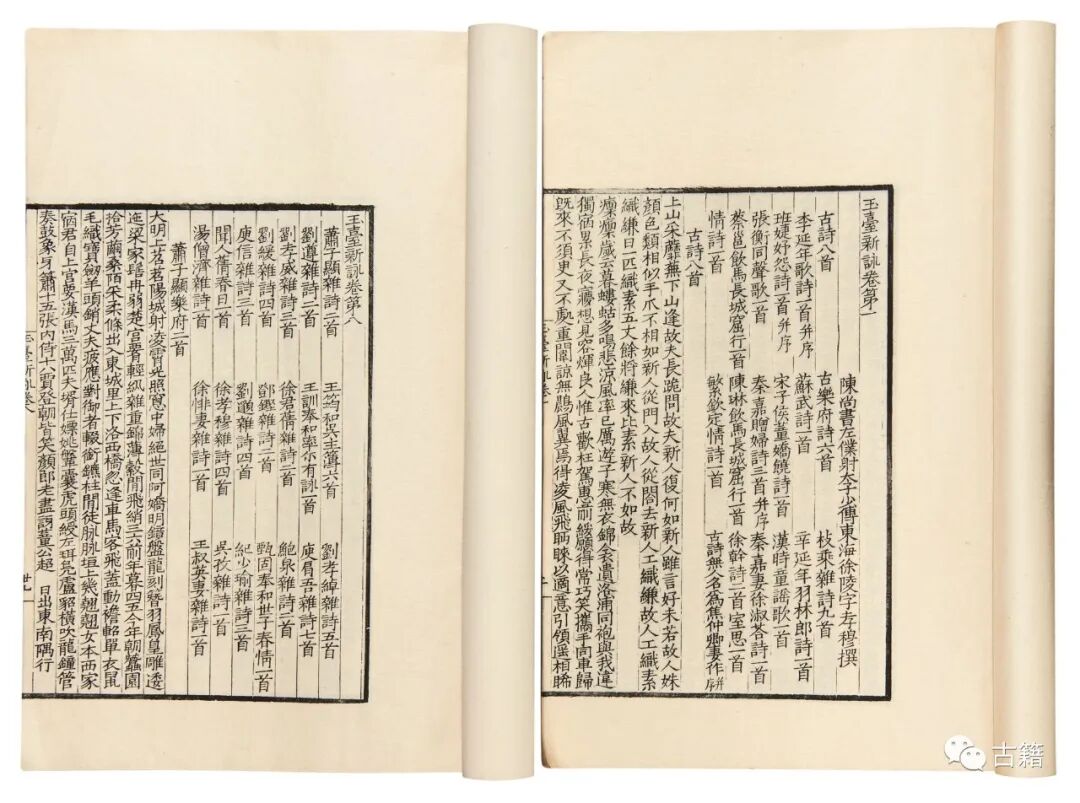 玉臺新詠卷第一
陳尚書左僕射太子少傅東海徐陵字孝穆撰
古詩八首 古樂府詩六首 枚乘雜詩九首
李延年歌詩一首并序 蘇武詩一首 辛延年羽林郎詩一首
班婕妤怨詩一首并序 宋子侯董嬌饒詩一首 漢時童謠歌一首
張衡同聲歌一首 秦嘉贈婦詩三首并序 秦嘉妻徐淑荅詩一首
蔡邕飲馬長城窟行一首 陳琳飲馬長城窟行一首 徐幹詩二首室思一首
情詩一首 繁欽定情詩一首 古詩無名人為焦仲卿妻作并序
古詩八首
上山采蘼蕪下山逢故夫長跪問故夫新人復何如新人雖言好未若故人姝
顏色類相似手爪不相如新人從門入故人從閤去新人工織縑故人工織素
織縑日一匹織素五丈餘將縑來比素新人不如故
凜凜歲云暮螻蛄多鳴悲涼風率已厲遊子寒無衣錦衾遺洛浦同袍與我違
獨宿累長夜夢想見容輝良人惟古歡枉駕惠前綏願得常巧笑攜手同車歸
既來不須臾又不處重闈諒無鷐風翼焉得凌風飛眄睞以適意引領遙相睎
玉臺新詠卷一
玉臺新詠卷第八
蕭子顯雜詩二首 王筠和吳主簿六首 劉孝綽雜詩五首
劉遵雜詩二首 王訓奉和率尔有詠一首 庾肩吾雜詩七首
劉孝威雜詩三首 徐君蒨雜詩二首 鮑泉雜詩二首
劉緩雜詩四首 鄧鏗雜詩二首 甄固奉和世子春情一首
庾信雜詩三首 劉邈雜詩四首 紀少瑜雜詩三首
聞人蒨春日一首 徐孝穆雜詩四首 吳孜雜詩一首
湯僧濟雜詩一首 徐悱妻雜詩一首 王叔英妻雜詩一首
蕭子顯樂府二首
大明上名茗陽城射凌霄光照窻中婦絕世同阿嬌明鏡盤龍刻簪羽鳳皇雕逶
迤梁家髻冉弱楚宮腰輕紈雜重錦薄縠閒飛綃三六前年暮四五今年朝蠶園
拾芳繭桑陌采柔條出入東城里上下洛西橋忽逢車馬客飛蓋動襜軺單衣鼠
毛織寶劒羊頭銷丈夫疲應對御者輟銜鑣柱閒徒脉脉垣上幾翹翹女本西家
宿君自上宮要漢馬三萬匹夫壻仕嫖姚鞶囊虎頭綬左珥鳧盧貂橫吹龍鍾管
奏鼓象身簫十五張內侍十八賈登朝皆笑顏郎老盡訝董公超 日出東南隅行
玉臺新詠卷八
卅九
古籍